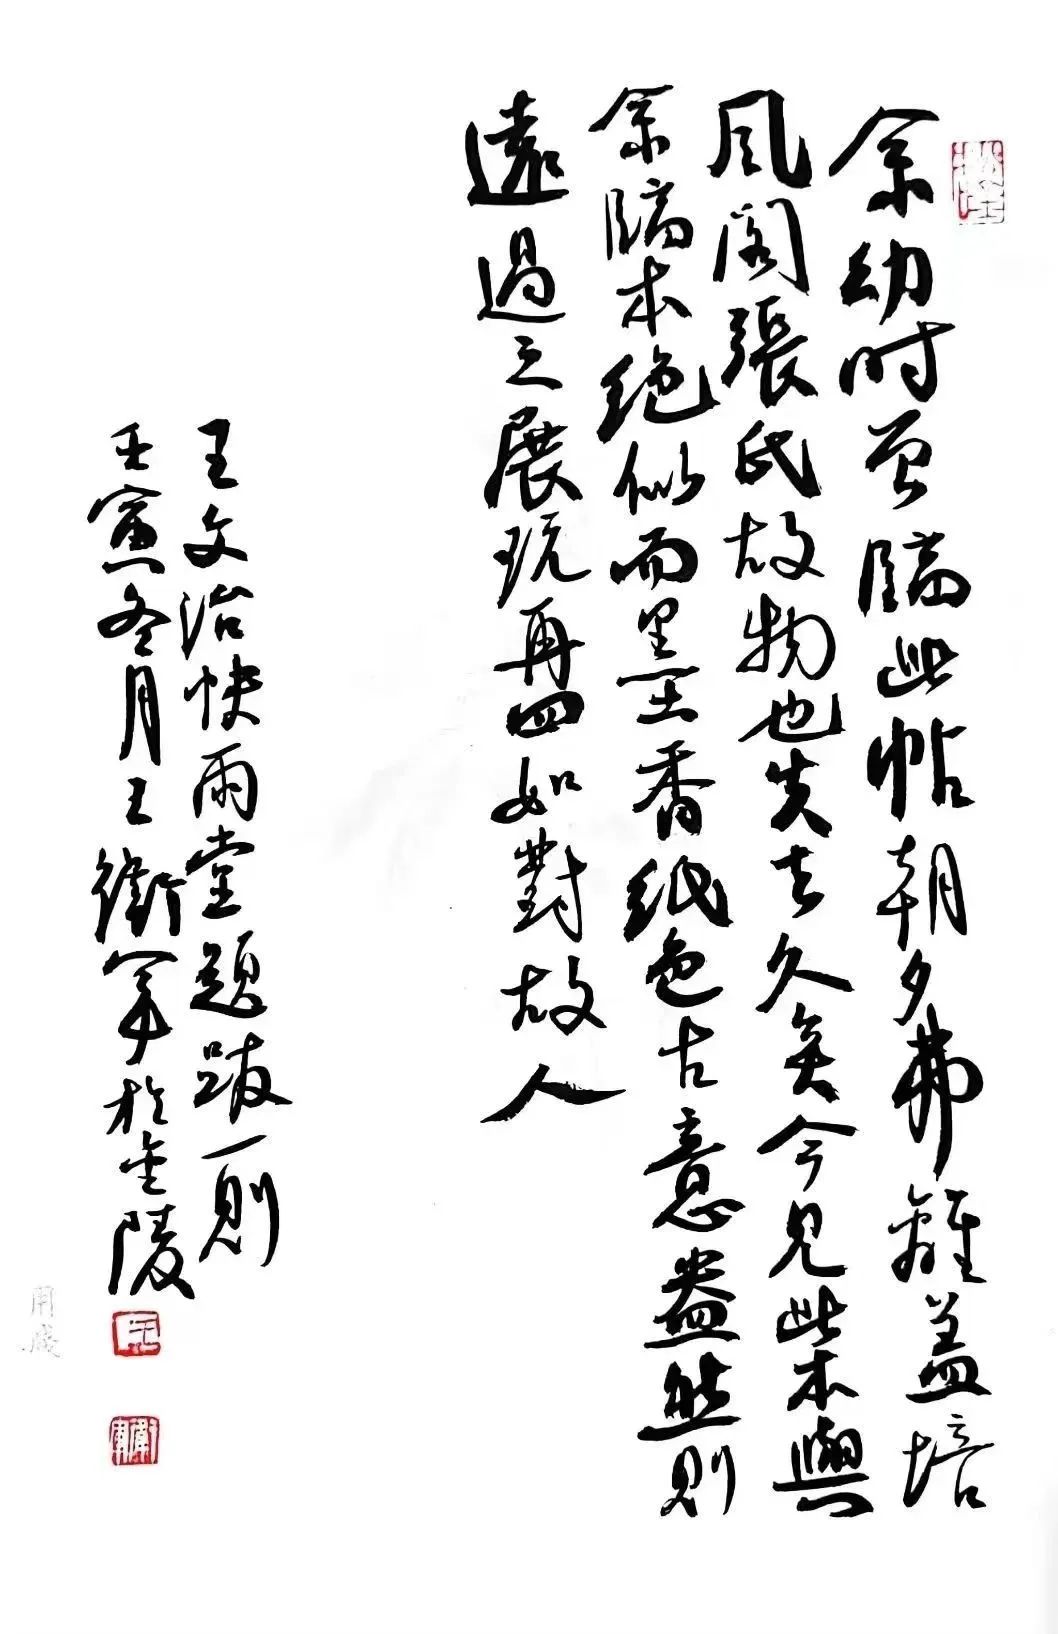 余幼时曾臨此帖朝夕弗離蓋培
风阁張氏故物也失去久矣今见此本與
余臨本绝似而墨香纸色古意盎然则
遠過之展玩再四如對故人
王文治快雨堂题跋一则
壬寅冬月王衛军於金陵